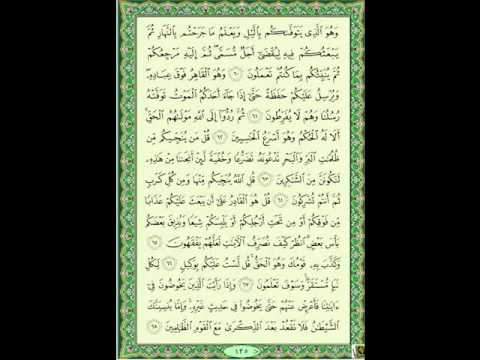 وَهُوَ ٱلَّذِى يَتَوَفَّىٰكُم بِٱلَّيْلِ وَيَعْلَمُ مَا جَرَحْتُم بِٱلنَّهَارِ ثُمَّ
يَبْعَثُكُمْ فِيهِ لِيُقْضَىٰٓ أَجَلٌ مُّسَمًّى ۖ ثُمَّ إِلَيْهِ مَرْجِعُكُمْ
ثُمَّ يُنَبِّئُكُم بِمَا كُنتُمْ تَعْمَلُونَ ٦٠ وَهُوَ ٱلْقَاهِرُ فَوْقَ عِبَادِهِۦ ۖ
وَيُرْسِلُ عَلَيْكُمْ حَفَظَةً حَتَّىٰٓ إِذَا جَآءَ أَحَدَكُمُ ٱلْمَوْتُ تَوَفَّتْهُ
رُسُلُنَا وَهُمْ لَا يُفَرِّطُونَ ٦١ ثُمَّ رُدُّوٓا۟ إِلَى ٱللَّهِ مَوْلَىٰهُمُ ٱلْحَقِّ ۚ
أَلَا لَهُ ٱلْحُكْمُ وَهُوَ أَسْرَعُ ٱلْحَٰسِبِينَ ٦٢ قُلْ مَن يُنَجِّيكُم مِّن
ظُلُمَٰتِ ٱلْبَرِّ وَٱلْبَحْرِ تَدْعُونَهُۥ تَضَرُّعًا وَخُفْيَةً لَّئِنْ أَنجَىٰنَا مِنْ هَٰذِهِۦ
لَنَكُونَنَّ مِنَ ٱلشَّٰكِرِينَ ٦٣ قُلِ ٱللَّهُ يُنَجِّيكُم مِّنْهَا وَمِن كُلِّ كَرْبٍ
ثُمَّ أَنتُمْ تُشْرِكُونَ ٦٤ قُلْ هُوَ ٱلْقَادِرُ عَلَىٰٓ أَن يَبْعَثَ عَلَيْكُمْ عَذَابًا
مِّن فَوْقِكُمْ أَوْ مِن تَحْتِ أَرْجُلِكُمْ أَوْ يَلْبِسَكُمْ شِيَعًا وَيُذِيقَ بَعْضَكُم
بَأْسَ بَعْضٍ ۗ ٱنظُرْ كَيْفَ نُصَرِّفُ ٱلْءَايَٰتِ لَعَلَّهُمْ يَفْقَهُونَ ٦٥
وَكَذَّبَ بِهِۦ قَوْمُكَ وَهُوَ ٱلْحَقُّ ۚ قُل لَّسْتُ عَلَيْكُم بِوَكِيلٍ ٦٦ لِّكُلِّ
نَبَإٍ مُّسْتَقَرٌّ ۚ وَسَوْفَ تَعْلَمُونَ ٦٧ وَإِذَا رَأَيْتَ ٱلَّذِينَ يَخُوضُونَ فِىٓ
ءَايَٰتِنَا فَأَعْرِضْ عَنْهُمْ حَتَّىٰ يَخُوضُوا۟ فِى حَدِيثٍ غَيْرِهِۦ ۚ وَإِمَّا يُنسِيَنَّكَ
ٱلشَّيْطَٰنُ فَلَا تَقْعُدْ بَعْدَ ٱلذِّكْرَىٰ مَعَ ٱلْقَوْمِ ٱلظَّٰلِمِينَ ٦٨
١٣٥